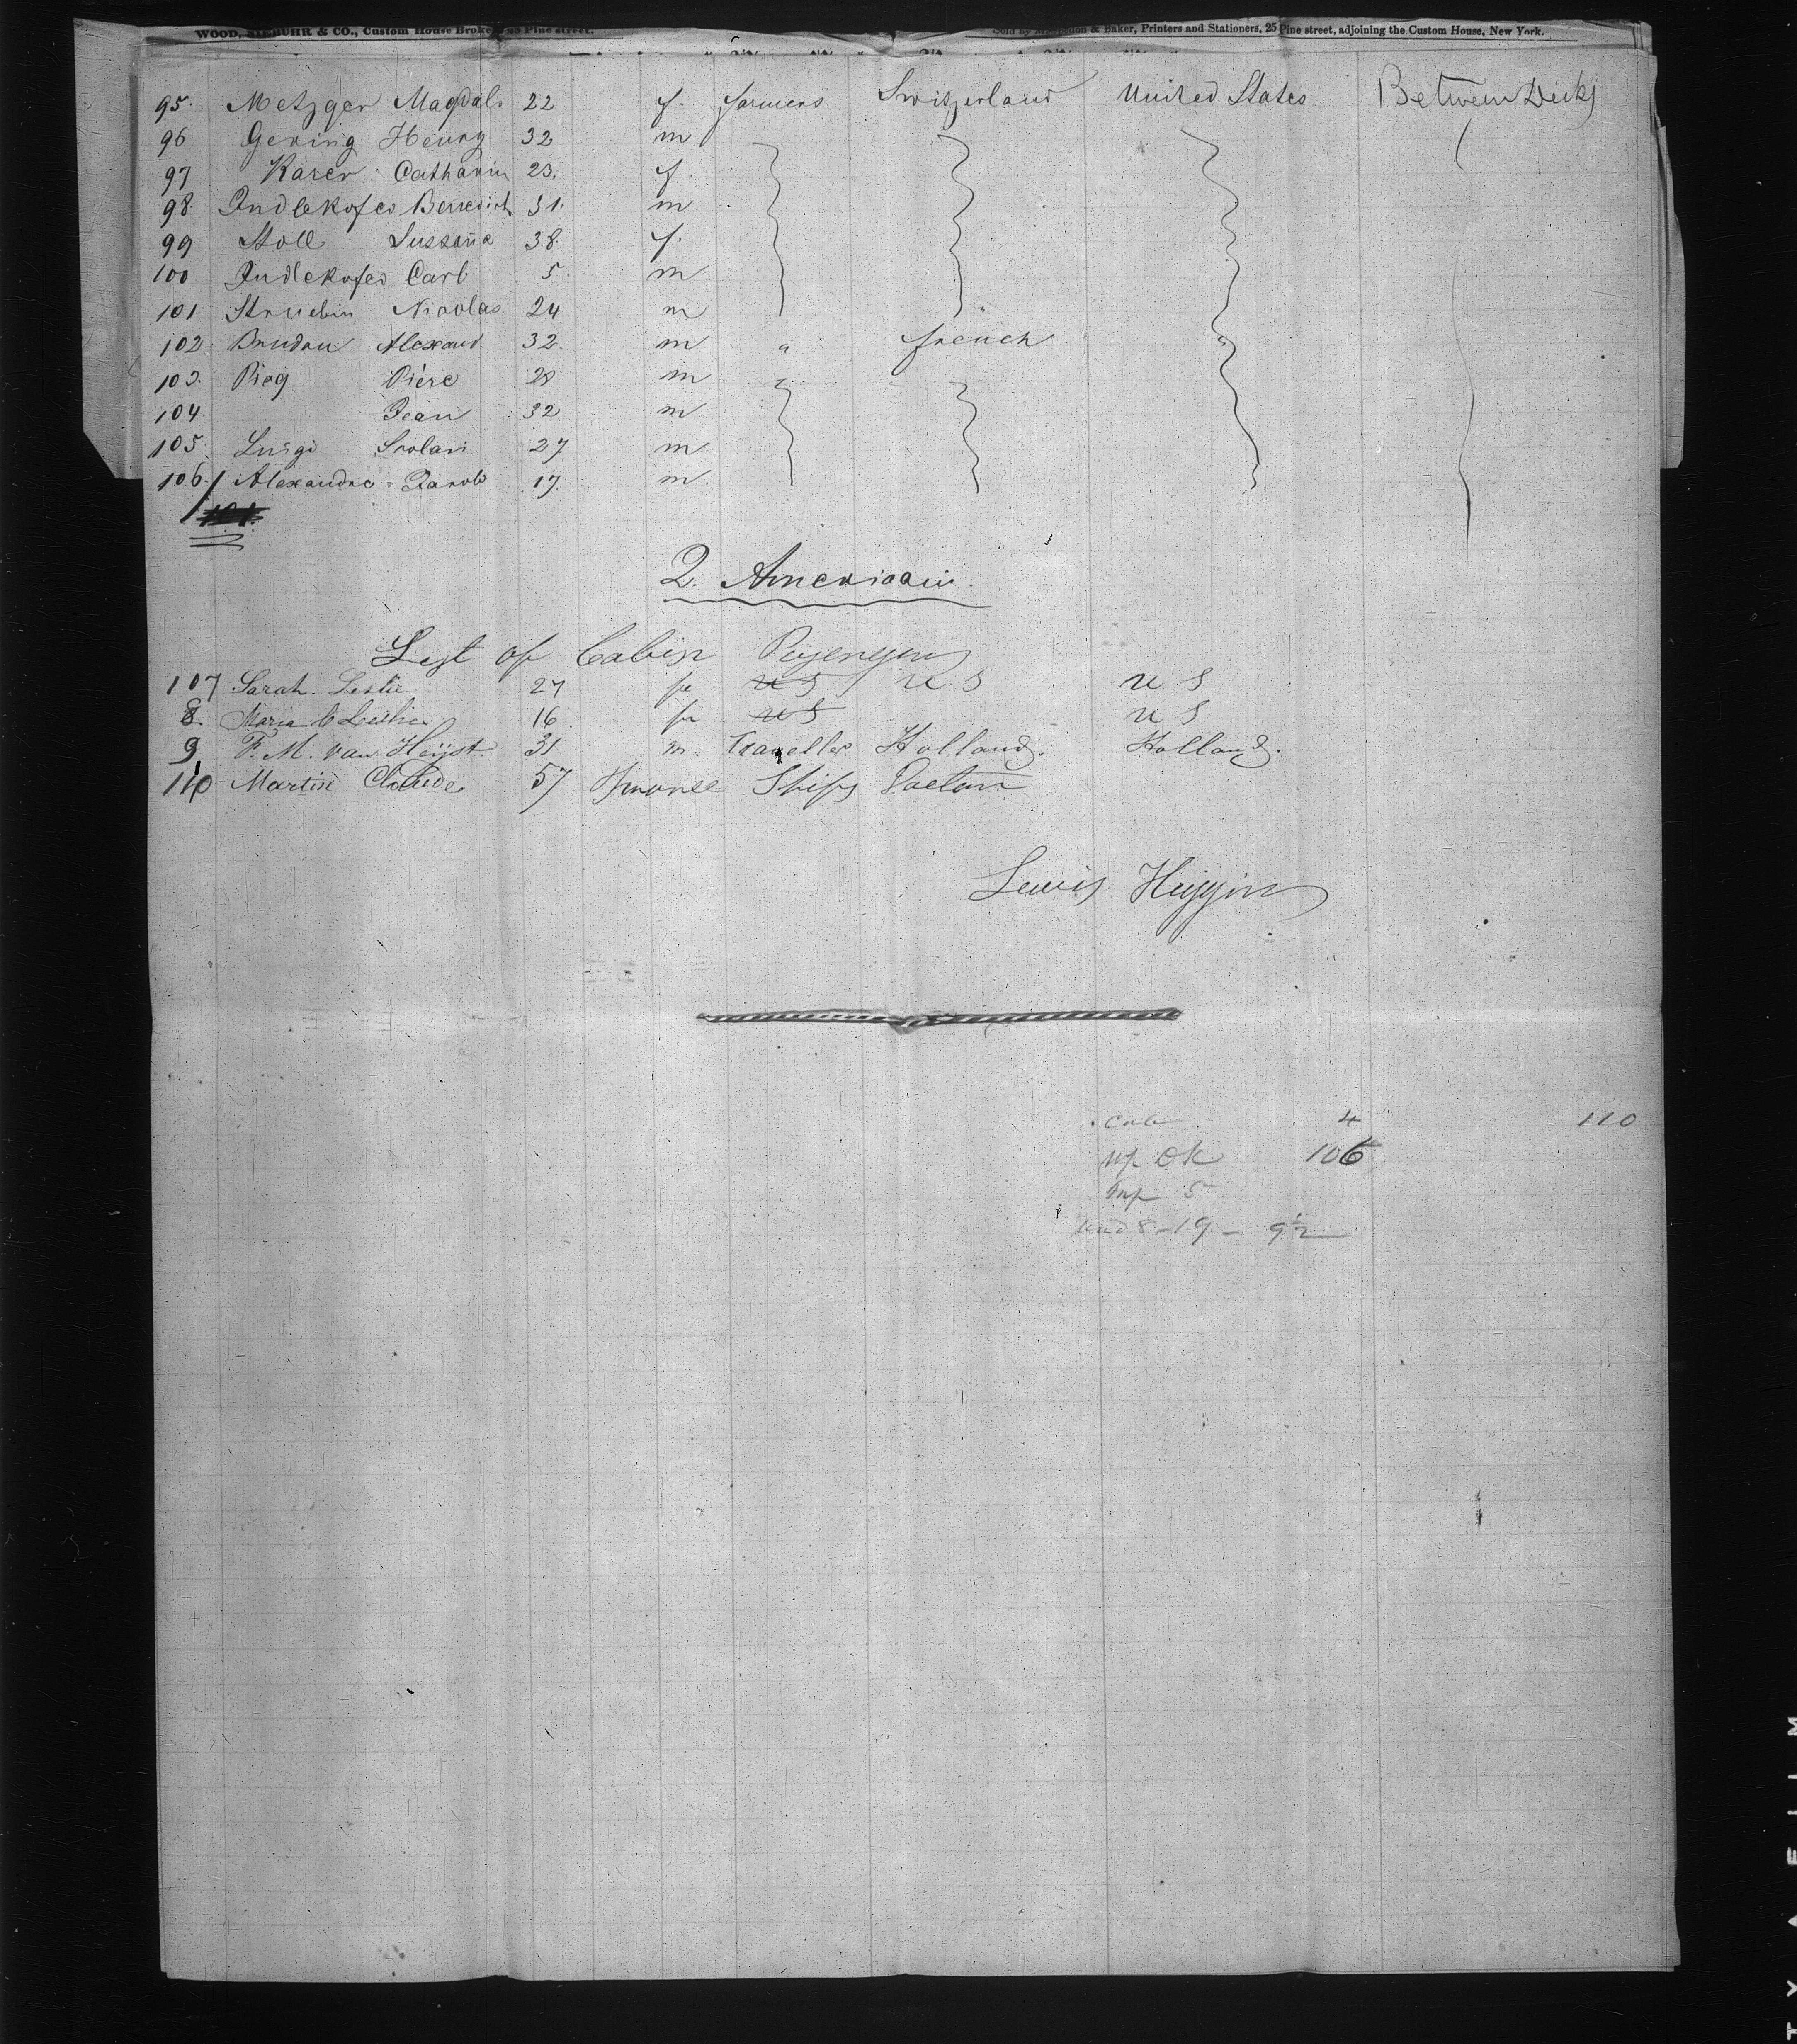 WOOD, NIEBUHR & CO., Custom House Brokers, 25 Pine street. Sold by & Baker, Printers and Stationers, 25 Pine street, adjoining the Custom House, New York.
95. Metzger Magdal. 22 f. farmers Switzerland United States Between Decks
96 Gering Henry 32 m
97 Karer Catharin 23. f.
98. Indlekofer Benedict 31. m
99 Stoll Sussana 38. f.
100 Indlekofer Carl 5. m
101 Struebin Nicolas 24 m
102 Alexand. 32. m " french "
103. Piere 28 m "
104. Jean 32 m
105. Luigi 27 m
106. Alexandre Jacob 17. m.
2. Americain.
List of Cabin Pasengers
107 Sarah Leslie 27 fe U S U S U S
8 Maria C Leslie 16 fe U S U S
9 F. M. van Heijst. 31 m. Traveller Holland. Holland.
110 Martin Claude 57 Ships
Lewis Higgins
cab 4 110
up OK 106
Inf 5
8-19 - 9 1/2